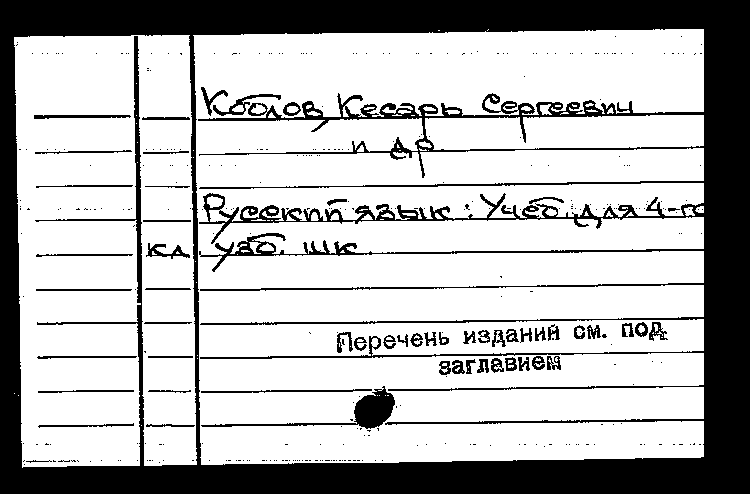 Коблов, Кесарь Сергеевич
и др
Русский язык : Учеб. для 4-го
кл. узб. шк.
Перечень изданий см. под
заглавием